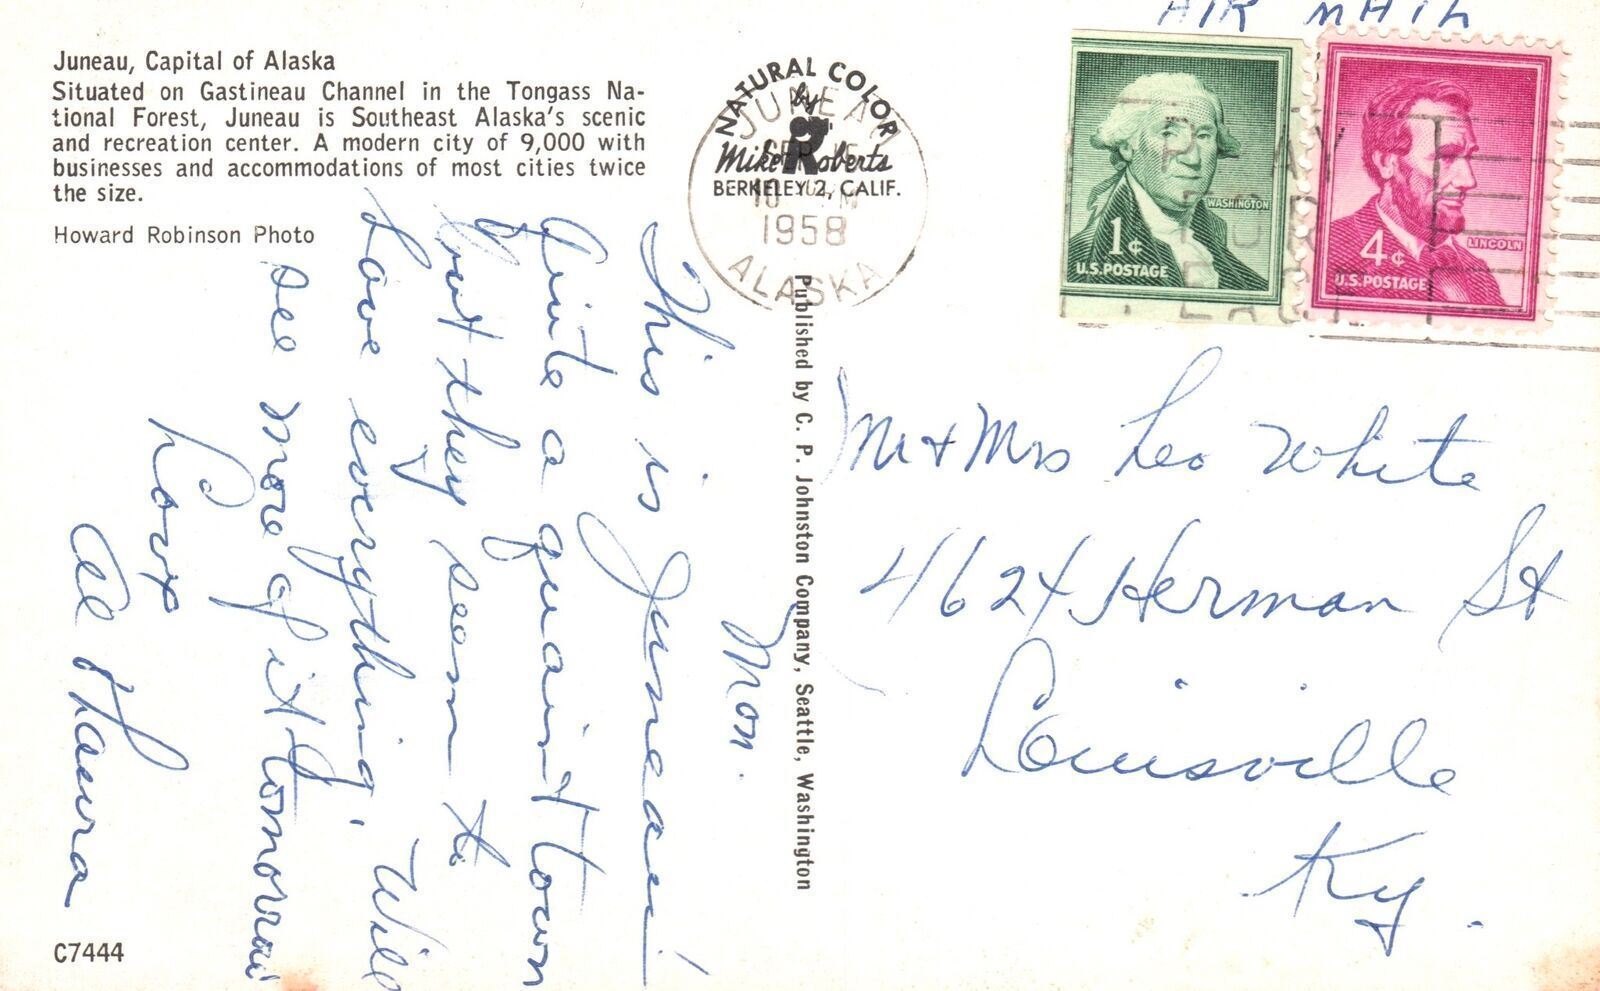 AIR MAIL
Juneau, Capital of Alaska
Situated on Gastineau Channel in the Tongass Na-
tional Forest, Juneau is Southeast Alaska's scenic
and recreation center. A modern city of 9,000 with
businesses and accommodations of most cities twice
the size.
Howard Robinson Photo
NATURAL COLOR
by
Mike Roberts
BERKELEY 2, CALIF.
JUNEA
SEP 15
10
1958
ALASKA
WASHINGTON
1¢
U.S. POSTAGE
LINCOLN
4¢
U.S. POSTAGE
PRAY
FOR
PEACE
Published by C. P. Johnston Company, Seattle, Washington
Mon.
This is Juneau!
Quite a quaint town
but they seem to
have everything. Will
see more of it tomorrow
Love
Al & Laura
Mr & Mrs Leo White
4624 Herman St
Louisville
Ky.
C7444